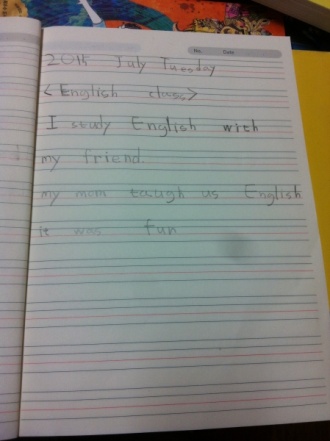 No. Date
2015 July Tuesday
<English class>
I study English with
my friend.
my mom taugh us English
it was fun